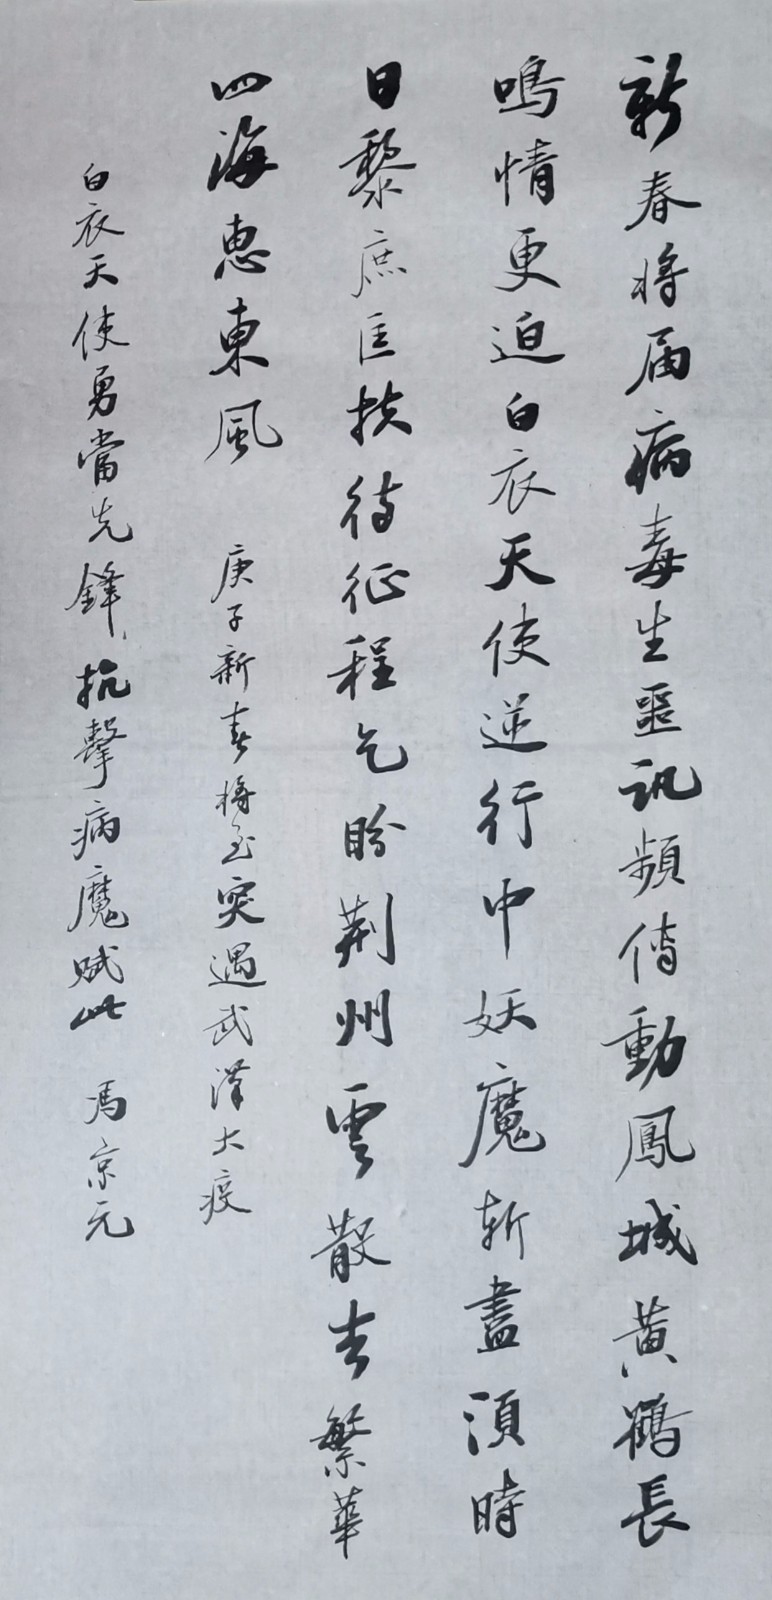 新春将届病毒生噩訊頻傳動鳳城黄鶴長
鳴情更迫白衣天使逆行中妖魔斬盡須時
日黎庶匡扶待征程乞盼荆州雲散去繁華
四海惠東風 庚子新春将至突遇武漢大疫
白衣天使勇當先鋒抗擊病魔賦此 馮京元